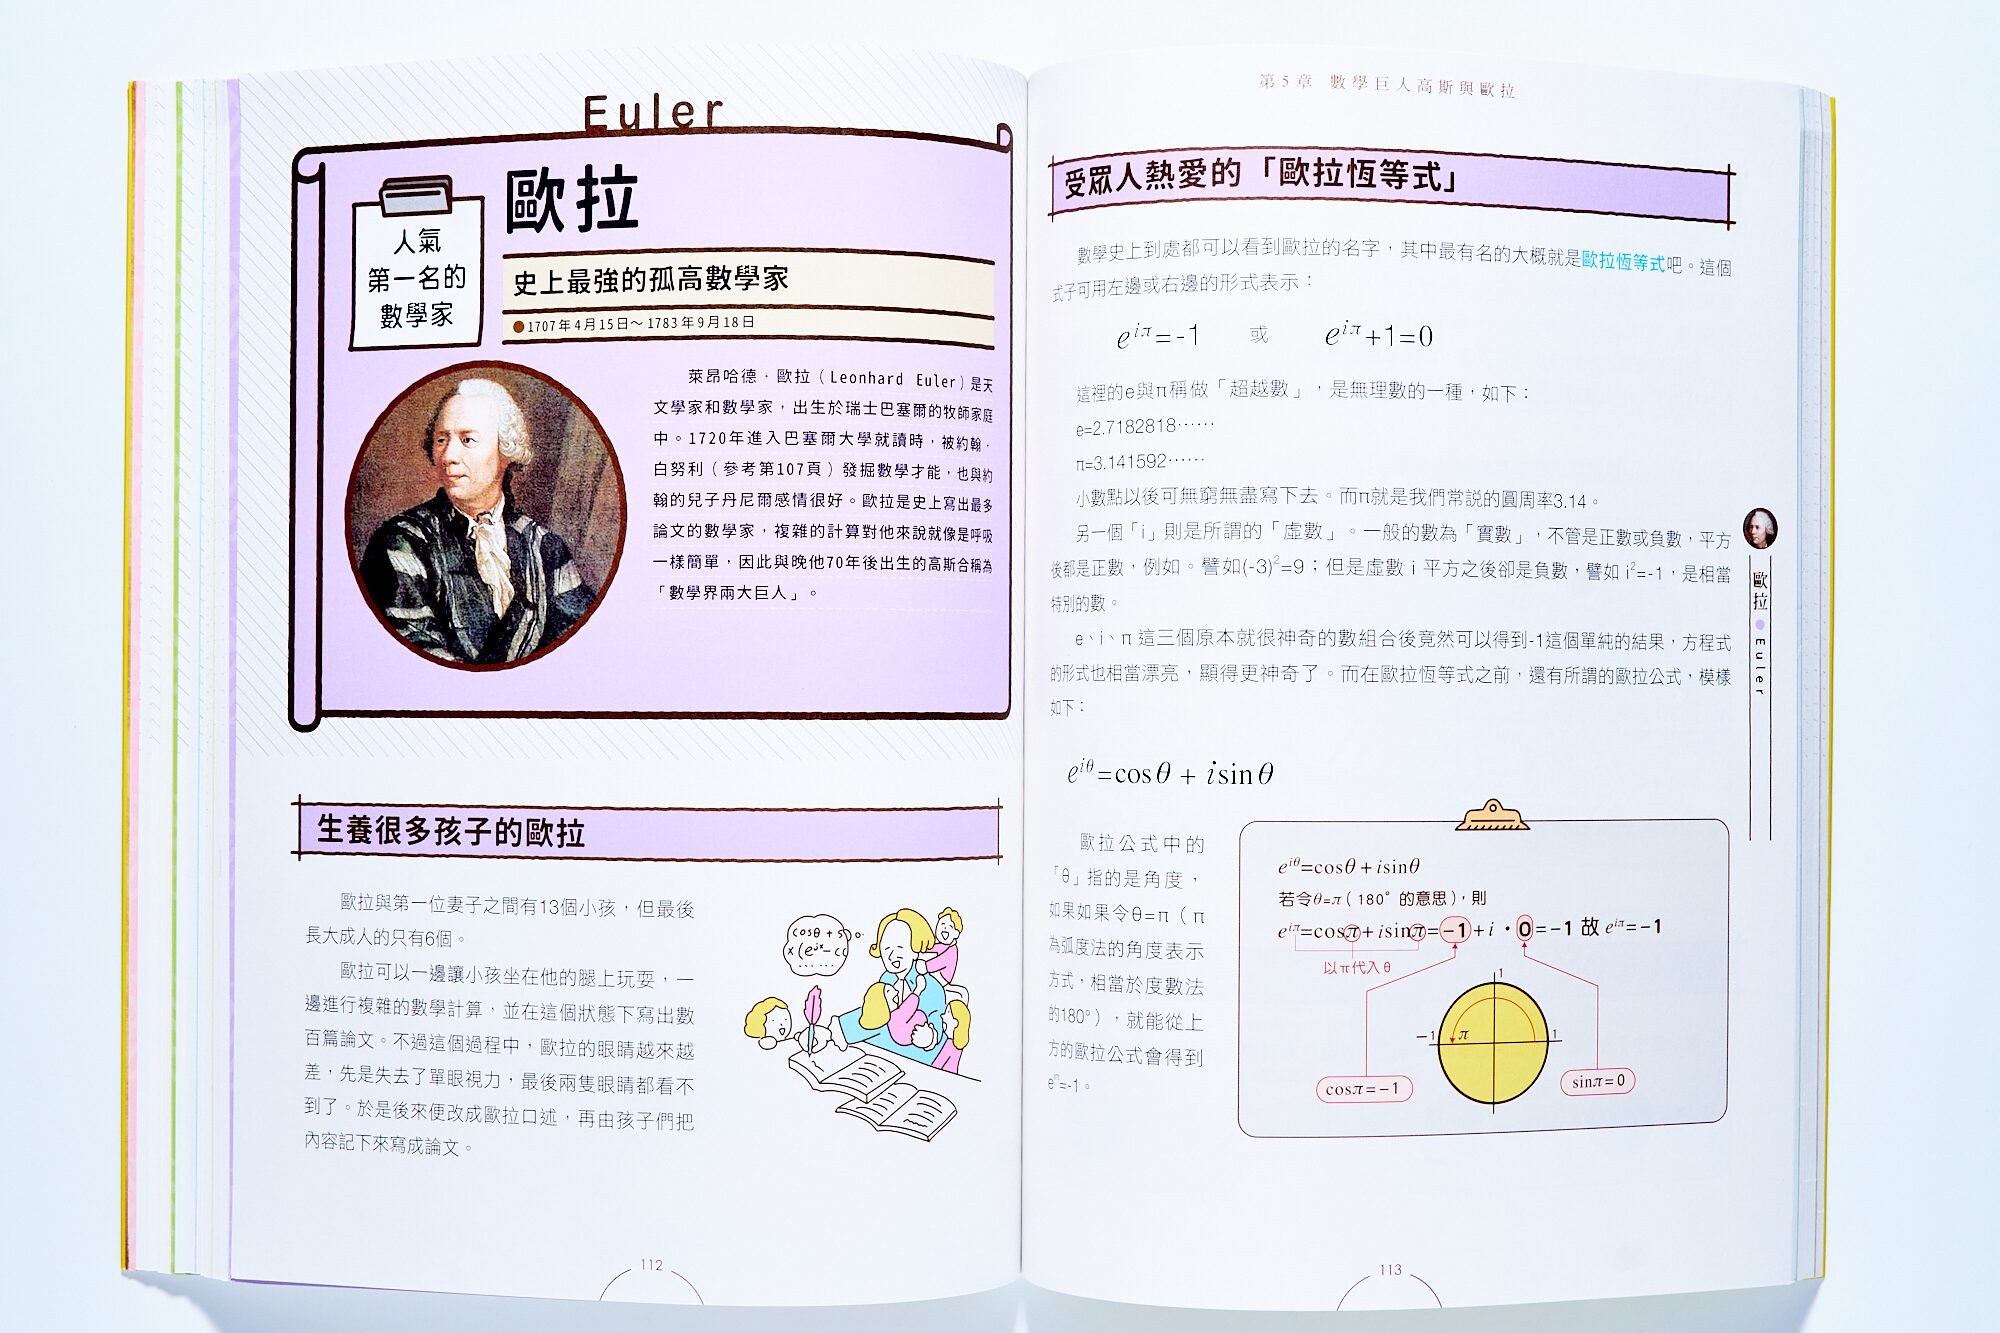 Euler
歐拉
人氣
第一名的
數學家
史上最強的孤高數學家
●1707年4月15日～1783年9月18日
萊昂哈德・歐拉（Leonhard Euler）是天
文學家和數學家，出生於瑞士巴塞爾的牧師家庭
中。1720年進入巴塞爾大學就讀時，被約翰・
白努利（參考第107頁）發掘數學才能，也與約
翰的兒子丹尼爾感情很好。歐拉是史上寫出最多
論文的數學家，複雜的計算對他來說就像是呼吸
一樣簡單，因此與晚他70年後出生的高斯合稱為
「數學界兩大巨人」。
生養很多孩子的歐拉
歐拉與第一位妻子之間有13個小孩，但最後
長大成人的只有6個。
歐拉可以一邊讓小孩坐在他的腿上玩耍，一
邊進行複雜的數學計算，並在這個狀態下寫出數
百篇論文。不過這個過程中，歐拉的眼睛越來越
差，先是失去了單眼視力，最後兩隻眼睛都看不
到了。於是後來便改成歐拉口述，再由孩子們把
內容記下來寫成論文。
112
第5章 數學巨人高斯與歐拉
受眾人熱愛的「歐拉恆等式」
數學史上到處都可以看到歐拉的名字，其中最有名的大概就是歐拉恆等式吧。這個
式子可用左邊或右邊的形式表示：
e^{iπ}=-1 或 e^{iπ}+1=0
這裡的e與π稱做「超越數」，是無理數的一種，如下：
e=2.7182818⋯⋯
π=3.141592⋯⋯
小數點以後可無窮無盡寫下去。而π就是我們常說的圓周率3.14。
另一個「i」則是所謂的「虛數」。一般的數為「實數」，不管是正數或負數，平方
後都是正數，例如。譬如(-3)²=9；但是虛數 i 平方之後卻是負數，譬如 i²=-1，是相當
特別的數。
e、i、π 這三個原本就很神奇的數組合後竟然可以得到-1這個單純的結果，方程式
的形式也相當漂亮，顯得更神奇了。而在歐拉恆等式之前，還有所謂的歐拉公式，模樣
如下：
e^{iθ}=cosθ + isinθ
歐拉公式中的
「θ」指的是角度，
如果如果令θ=π（π
為弧度法的角度表示
方式，相當於度數法
的180°），就能從上
方的歐拉公式會得到
e^{iπ}=-1。
e^{iθ}=cosθ + isinθ
若令θ=π（180° 的意思），則
e^{iπ}=cosπ + isinπ = -1 + i・0 = -1 故 e^{iπ}= -1
以π代入θ
1
-1 π 1
cosπ = -1
sinπ = 0
歐拉●Euler
113